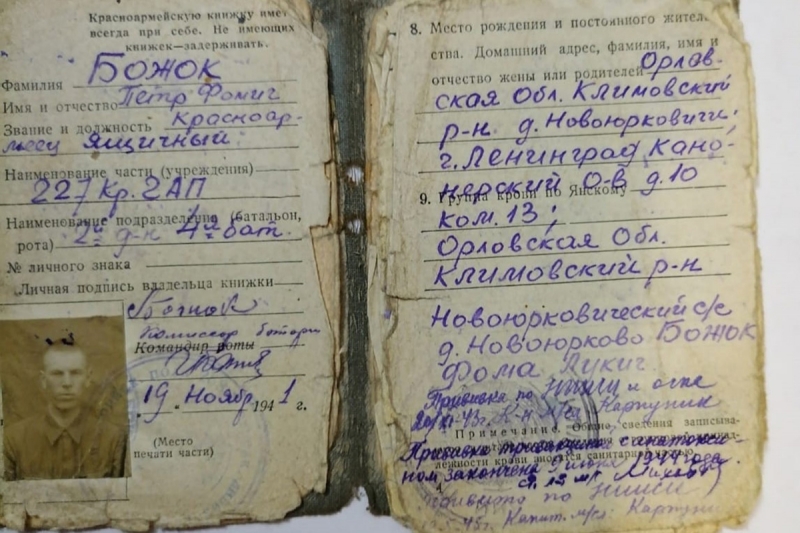 Красноармейскую книжку име
всегда при себе. Не имеющих
книжек—задерживать.
Фамилия БОЖОК
Имя и отчество Пётр Фомич
Звание и должность Красноар-
меец ящичный.
Наименование части (учреждения)
227 Кр. 2 АП
Наименование подразделения (батальон,
рота) 2й д-н 4я бат.
№ личного знака
Личная подпись владельца книжки
Командир роты
19 Ноябр 1941 г.
(Место
печати части)
8. Место рождения и постоянного жител
ства. Домашний адрес, фамилия, имя и
отчество жены или родителей Орлов-
ская Обл. Климовский
р-н д. Новоюрковичи;
г. Ленинград, Кано-
нерский О-в д. 10
9. Группа крови по Янскому
ком. 13;
Орловская Обл.
Климовский р-н
Новоюрковический с/с
д. Новоюрково Божок
Фома Лукич.
Прививка по
Примечание. Общие сведения записыва-
закончена 1944 года